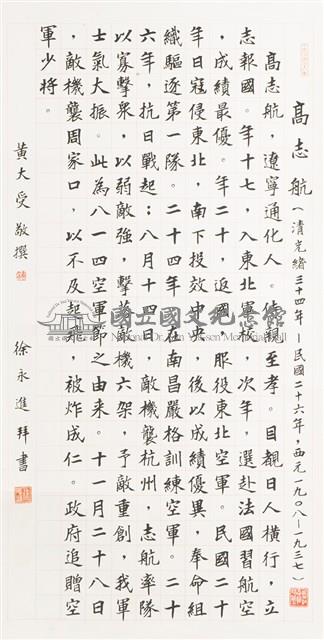 高志航(清光緒三十四年—民國二十六年,西元一九○八—一九三七)
高志航,遼寧通化人。侍親至孝。目覩日人橫行,立
志報國。年十七,入東北軍校,次年,選赴法國習航空
,成績最優。年二十,返國,服役東北空軍。民國二十
年日寇侵東北,南下投效中央。後以成績優異,奉命組
織驅逐第一隊。二十四年,在南昌嚴格訓練空軍。二十
六年,抗日戰起;八月十四日,敵機襲杭州,志航率隊
以寡擊衆,以弱敵強,擊落敵機六架,予敵重創,我軍
士氣大振。此為八一四空軍節之由來。十一月二十八日
,敵機襲周家口,以不及起飛,被炸成仁。政府追贈空
軍少將。
黃大受敬撰
徐永進拜書
國立國父紀念館